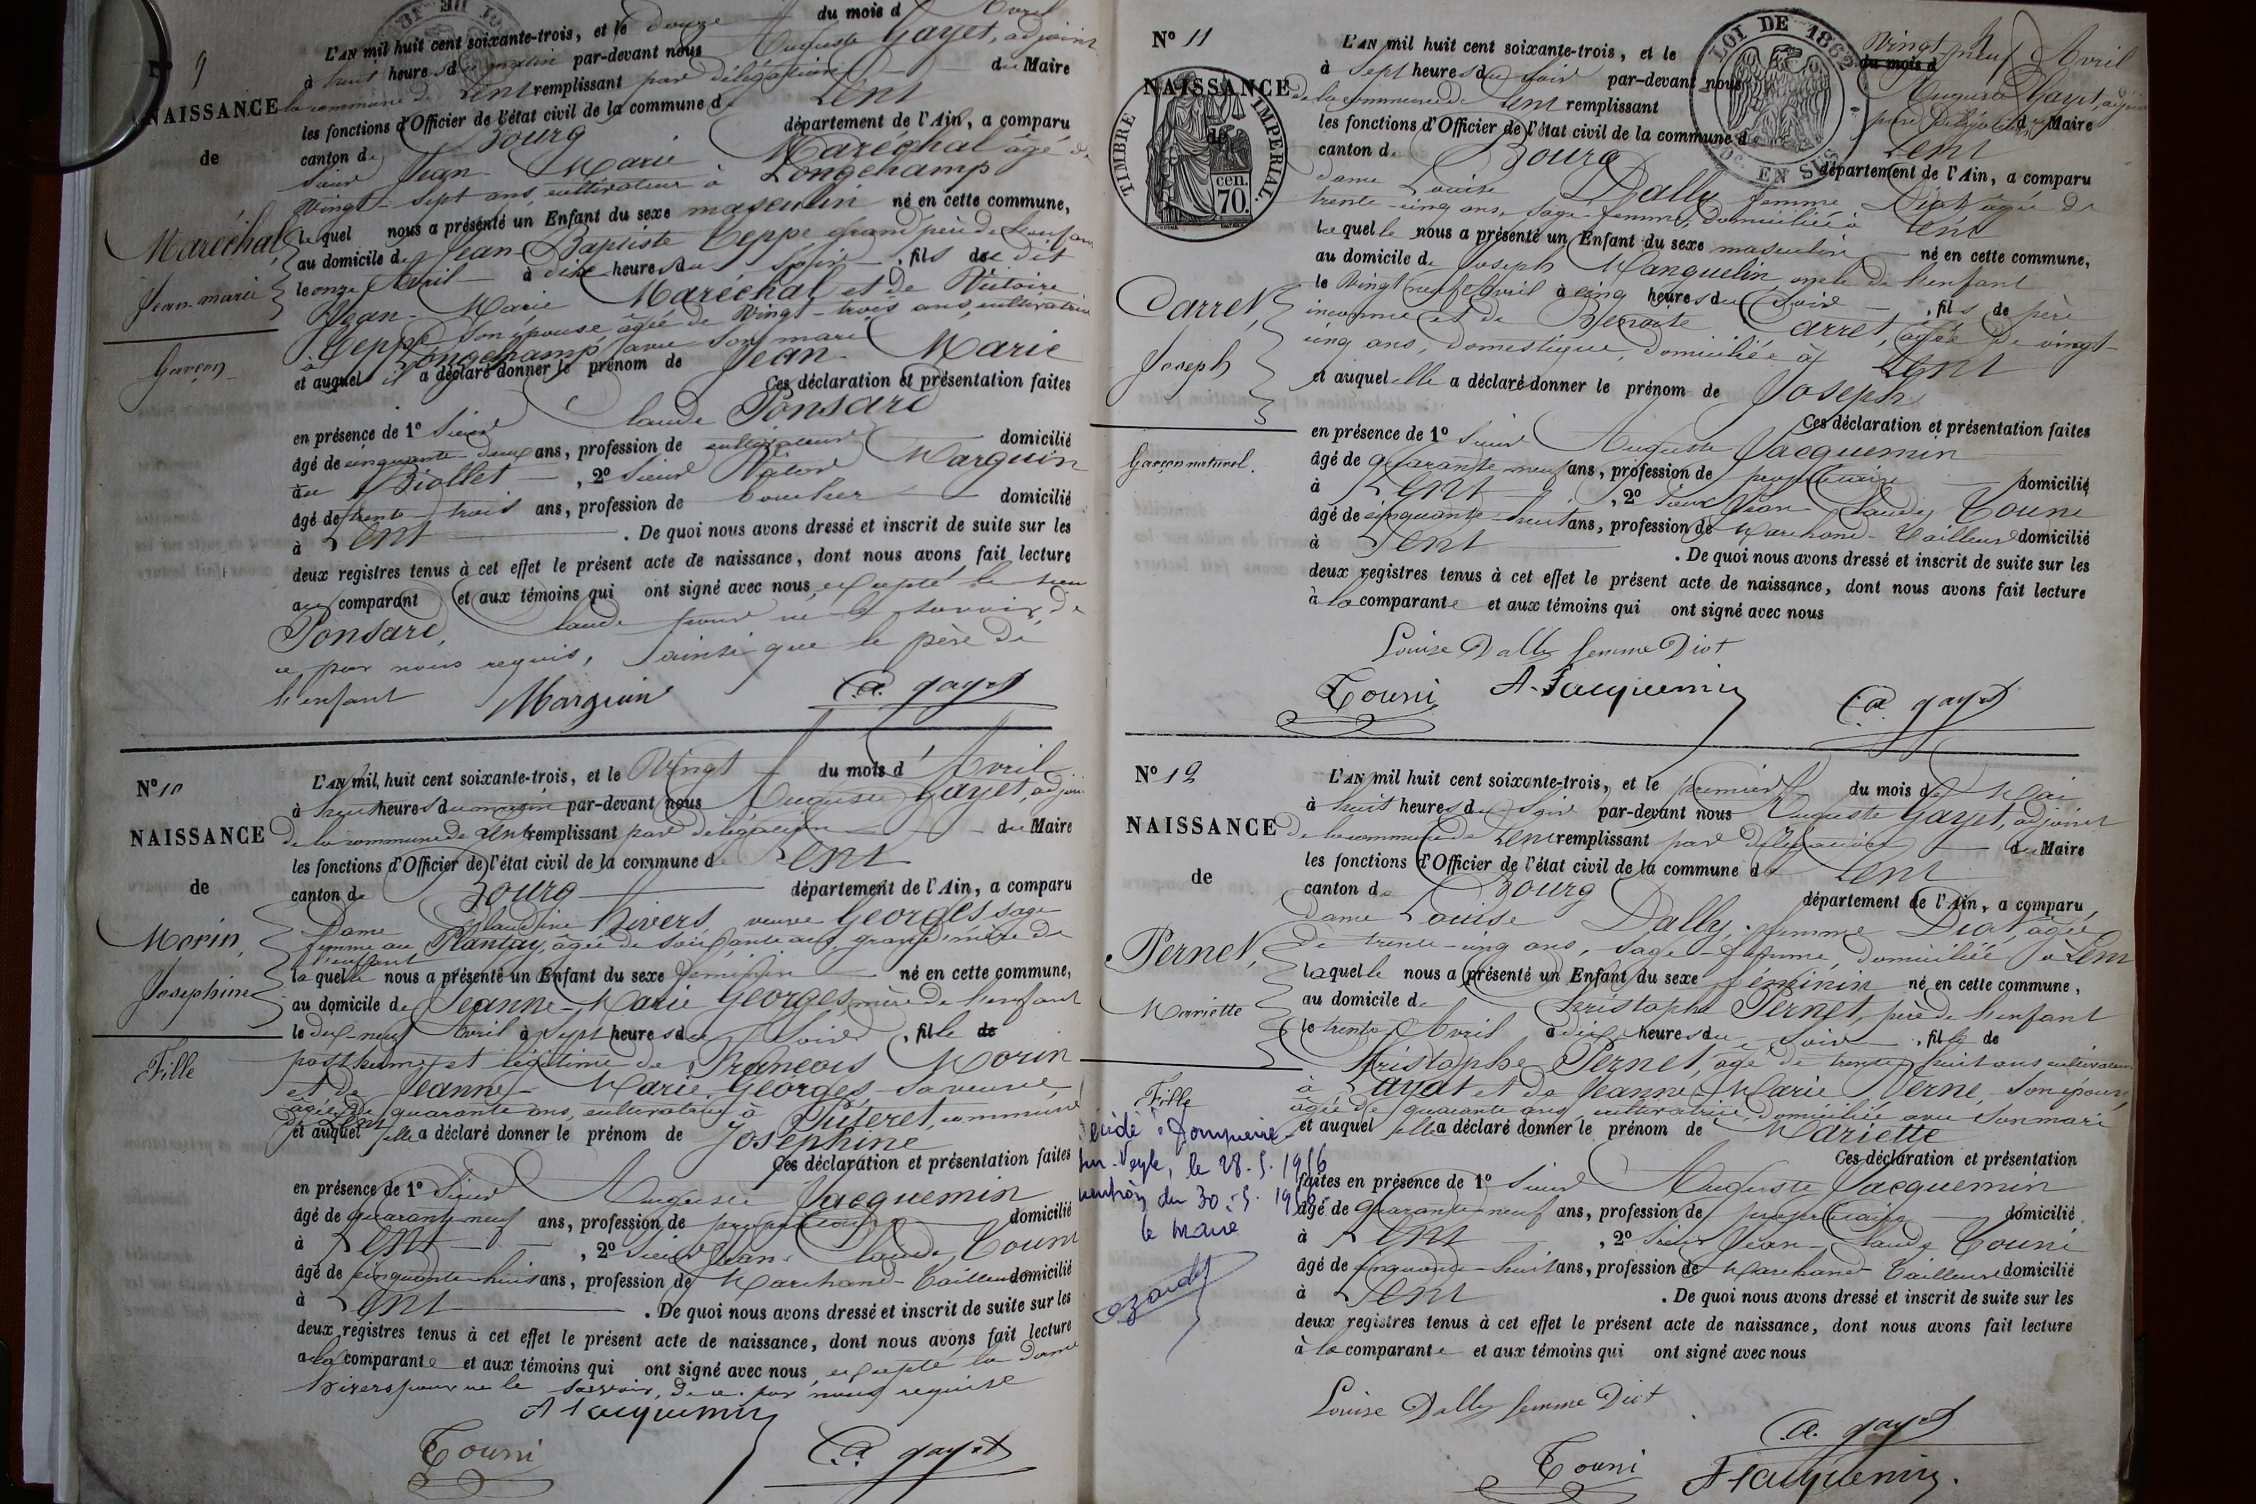 N° 9
NAISSANCE
de
Maréchal,
Jean-marie
Garçon
L'AN mil huit cent soixante-trois, et le douze du mois d'Avril
à huit heures du matin par-devant nous Auguste Gayet, adjoint
de la commune de Lent remplissant par délégation du Maire
les fonctions d'Officier de l'état civil de la commune de Lent
canton de Bourg département de l'Ain, a comparu
sieur Jean Marie Maréchal âgé de
vingt-sept ans, cultivateur à Longchamp
lequel nous a présenté un Enfant du sexe masculin né en cette commune,
au domicile de Jean-Baptiste Ceppe grand père de l'enfant
le onze Avril à dix heures du soir, fils de dit
Jean-Marie Maréchal et de Victoire
Ceppe, son épouse, âgée de vingt-trois ans, cultivatrice
à Longchamp, avec son mari
et auquel il a déclaré donner le prénom de Jean Marie
Ces déclaration et présentation faites
en présence de 1° sieur Claude Ponsard
âgé de cinquante-deux ans, profession de cultivateur domicilié
au Biollet, 2° sieur Victor Marguin
âgé de trente-trois ans, profession de boucher domicilié
à Lent. De quoi nous avons dressé et inscrit de suite sur les
deux registres tenus à cet effet le présent acte de naissance, dont nous avons fait lecture
au comparant et aux témoins qui ont signé avec nous, excepté le sieur
Ponsard, Claude pour ne le savoir, de
ce par nous requis, ainsi que le père de
l'enfant
Marguin A. gayet
N° 10
NAISSANCE
de
Morin,
Josephine
Fille
L'AN mil huit cent soixante-trois, et le vingt du mois d'Avril
à heures du matin par-devant nous Auguste Gayet, adjoint
de la commune de Lent remplissant par délégation du Maire
les fonctions d'Officier de l'état civil de la commune de Lent
canton de Bourg département de l'Ain, a comparu
Dame Claudine Hivers veuve Georges sage
femme au Plantay, âgée de soixante ans, grand'mère de
l'enfant
laquelle nous a présenté un Enfant du sexe féminin né en cette commune,
au domicile de Jeanne-Marie Georges, mère de l'enfant
le dix-neuf Avril à sept heures du soir, fille de
posthume et légitime de François Morin
et de Jeanne-Marie Georges, sa veuve
âgée de quarante ans, cultivatrice à commune
de Lent
et auquel elle a déclaré donner le prénom de Josephine
Ces déclaration et présentation faites
en présence de 1° sieur Auguste Jacquemin
âgé de quarante neuf ans, profession de propriétaire domicilié
à Lent, 2° sieur Jean-Claude Tourni
âgé de cinquante-huit ans, profession de Marchand-Tailleur domicilié
à Lent. De quoi nous avons dressé et inscrit de suite sur les
deux registres tenus à cet effet le présent acte de naissance, dont nous avons fait lecture
à la comparante et aux témoins qui ont signé avec nous, excepté la dame
Hivers pour ne le savoir, de ce par nous requise
A Jacquemin
Tourni A. gayet
N° 11
NAISSANCE
de
TIMBRE IMPERIAL.
70 cen.
LOI DE 1862
2 Dès EN SUS
Carret,
Joseph
Garçon naturel.
L'AN mil huit cent soixante-trois, et le vingt neuf du mois d Avril
à sept heures du soir par-devant nous Auguste Gayet, adjoint
de la commune de Lent remplissant par délégation du Maire
les fonctions d'Officier de l'état civil de la commune de Lent
canton de Bourg département de l'Ain, a comparu
dame Louise Dally femme Diot âgée de
trente-cinq ans, sage-femme, domiciliée à Lent
laquelle nous a présenté un Enfant du sexe masculin né en cette commune,
au domicile de Joseph Manguelin oncle de l'enfant
le vingt neuf Avril à cinq heures du soir, fils de père
inconnu et de Benoite Carret, âgée de vingt-
cinq ans, domestique, domiciliée à Lent
et auquel elle a déclaré donner le prénom de Joseph
Ces déclaration et présentation faites
en présence de 1° sieur Auguste Jacquemin
âgé de quarante neuf ans, profession de propriétaire domicilié
à Lent, 2° sieur Jean Claude Tourni
âgé de cinquante-huit ans, profession de Marchand-Tailleur domicilié
à Lent. De quoi nous avons dressé et inscrit de suite sur les
deux registres tenus à cet effet le présent acte de naissance, dont nous avons fait lecture
à la comparante et aux témoins qui ont signé avec nous
Louise Dally femme Diot
Tourni A. Jacquemin A. gayet
N° 12
NAISSANCE
de
Pernet,
Mariette
Fille
Décédé à Dompierre
sur-Veyle, le 28.5.1956
mention du 30.5.1956
le maire
L'AN mil huit cent soixante-trois, et le premier du mois de Mai
à huit heures du soir par-devant nous Auguste Gayet, adjoint
de la commune de Lent remplissant par délégation du Maire
les fonctions d'Officier de l'état civil de la commune de Lent
canton de Bourg département de l'Ain, a comparu
dame Louise Dally, femme Diot, âgée
de trente-cinq ans, sage-femme, domiciliée à Lent
laquelle nous a présenté un Enfant du sexe féminin né en cette commune,
au domicile de Christophe Pernet, père de l'enfant
le trente Avril à dix heures du soir, fille de
Christophe Pernet, âgé de trente-huit ans cultivateur
à Layat et de Jeanne-Marie Verne, son épouse,
âgée de quarante ans, cultivatrice domiciliée avec son mari
et auquel elle a déclaré donner le prénom de Mariette
Ces déclaration et présentation
faites en présence de 1° sieur Auguste Jacquemin
âgé de quarante-neuf ans, profession de propriétaire domicilié
à Lent, 2° sieur Jean-Claude Tourni
âgé de cinquante-huit ans, profession de Marchand Tailleur domicilié
à Lent. De quoi nous avons dressé et inscrit de suite sur les
deux registres tenus à cet effet le présent acte de naissance, dont nous avons fait lecture
à la comparante et aux témoins qui ont signé avec nous
Louise Dally femme Diot
A. gayet
Tourni A Jacquemin.